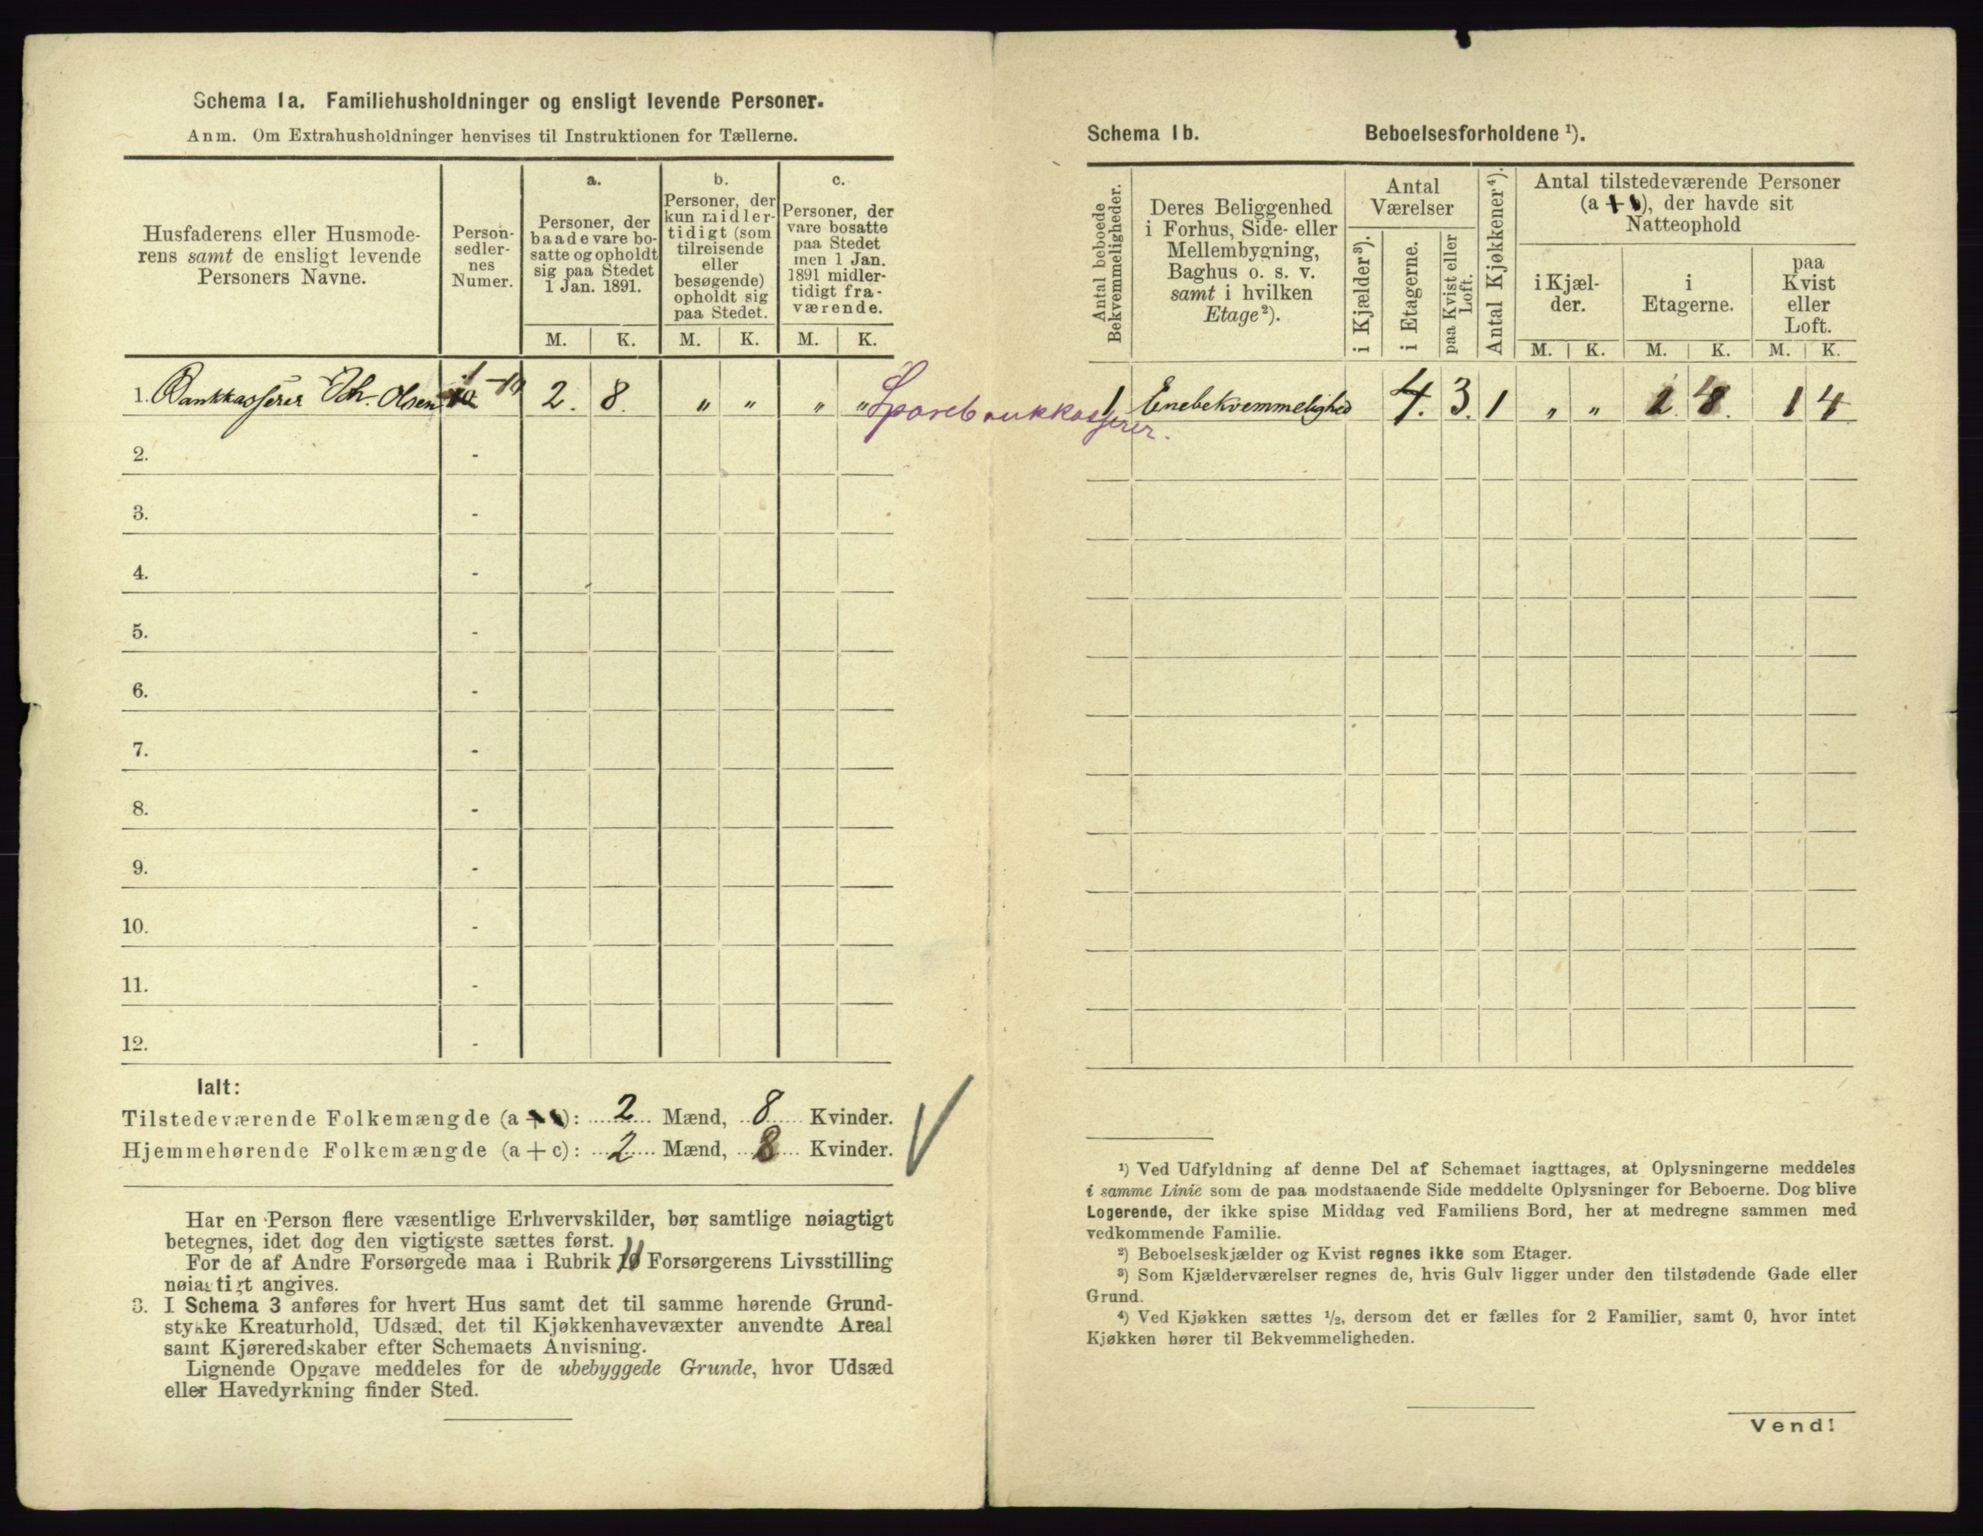 Schema 1 a. Familiehusholdninger og ensligt levende Personer.
Anm. Om Extrahusholdninger henvises til Instruktionen for Tællerne.
Husfaderens eller Husmode-
rens samt de ensligt levende
Personers Navne.
Person-
sedler-
nes
Numer.
a.
Personer, der
baade vare bo-
satte og opholdt
sig paa Stedet
1 Jan. 1891.
b.
Personer, der
kun midler-
tidigt (som
tilreisende
eller
besøgende)
opholdt sig
paa Stedet.
c.
Personer, der
vare bosatte
paa Stedet
men 1 Jan.
1891 midler-
tidigt fra-
værende.
M. K. M. K. M. K.
1. Bankkasserer Joh. Olsen 1 - 10 2. 8. " " " "
Sparebankkasserer.
2. -
3. -
4. -
5. -
6. -
7. -
8. -
9. -
10. -
11. -
12. -
Ialt:
Tilstedeværende Folkemængde (a + b): 2 Mænd, 8 Kvinder.
Hjemmehørende Folkemængde (a + c): 2 Mænd, 8 Kvinder.
Har en Person flere væsentlige Erhvervskilder, bør samtlige nøiagtigt
betegnes, idet dog den vigtigste sættes først.
For de af Andre Forsørgede maa i Rubrik 11 Forsørgerens Livsstilling
nøiagtigt angives.
3. I Schema 3 anføres for hvert Hus samt det til samme hørende Grund-
stykke Kreaturhold, Udsæd, det til Kjøkkenhavevæxter anvendte Areal
samt Kjøreredskaber efter Schemaets Anvisning.
Lignende Opgave meddeles for de ubebyggede Grunde, hvor Udsæd
eller Havedyrkning finder Sted.
Schema 1 b. Beboelsesforholdene ¹).
Antal beboede
Bekvemmeligheder.
Deres Beliggenhed
i Forhus, Side- eller
Mellembygning,
Baghus o. s. v.
samt i hvilken
Etage ²).
Antal
Værelser
i Kjælder ³).
i Etagerne.
paa Kvist eller
Loft.
Antal Kjøkkener ⁴).
Antal tilstedeværende Personer
(a + b), der havde sit
Natteophold
i Kjæl-
der.
i
Etagerne.
paa
Kvist
eller
Loft.
M. K. M. K. M. K.
1 Enebekvemmelighed 4. 3. 1 " " 1 4 1 4
¹) Ved Udfyldning af denne Del af Schemaet iagttages, at Oplysningerne meddeles
i samme Linie som de paa modstaaende Side meddelte Oplysninger for Beboerne. Dog blive
Logerende, der ikke spise Middag ved Familiens Bord, her at medregne sammen med
vedkommende Familie.
²) Beboelseskjælder og Kvist regnes ikke som Etager.
³) Som Kjælderværelser regnes de, hvis Gulv ligger under den tilstødende Gade eller
Grund.
⁴) Ved Kjøkken sættes ½, dersom det er fælles for 2 Familier, samt 0, hvor intet
Kjøkken hører til Bekvemmeligheden.
Vend!